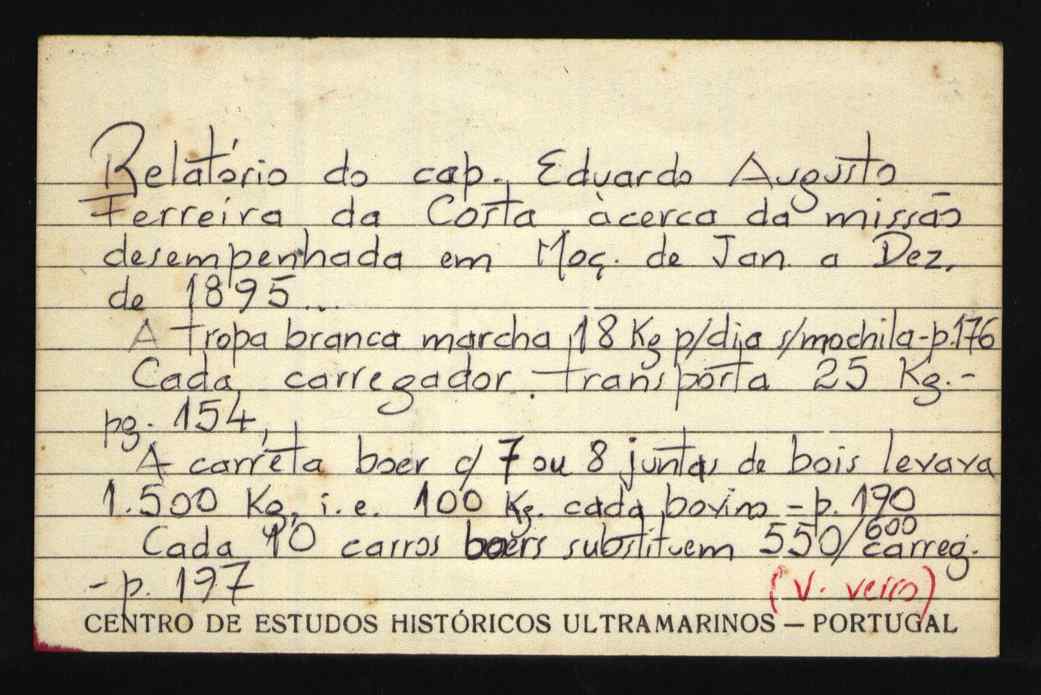 Relatório do cap. Eduardo Augusto
Ferreira da Costa àcerca da missão
desempenhada em Moç. de Jan. a Dez.
de 1895...
A tropa branca marcha 18 Kg p/dia s/mochila-p.176
Cada carregador transporta 25 Kg.-
pg. 154,
A carreta boer c/ 7 ou 8 juntas de bois levava
1.500 Kg, i.e. 100 Kg. cada bovino - p. 190
Cada 10 carros boers substituem 550/600 carreg.
- p. 197
(V. verso)
CENTRO DE ESTUDOS HISTÓRICOS ULTRAMARINOS — PORTUGAL